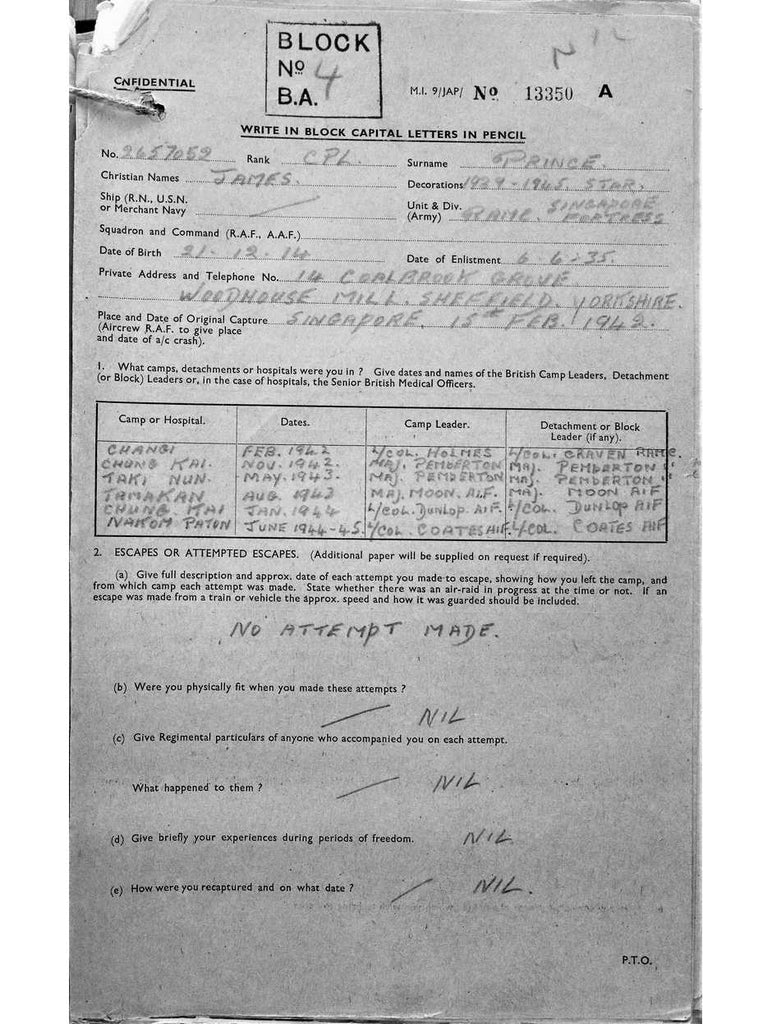 NIL
BLOCK
Nº 4
B.A.
CNFIDENTIAL
M.I. 9/JAP/ Nº 13350 A
WRITE IN BLOCK CAPITAL LETTERS IN PENCIL
No. 2657052 Rank CPL. Surname PRINCE.
Christian Names JAMES. Decorations 1939-1945 STAR.
Ship (R.N., U.S.N. or Merchant Navy Unit & Div. (Army) RAMC. SINGAPORE FORTRESS
Squadron and Command (R.A.F., A.A.F.)
Date of Birth 21-12-14 Date of Enlistment 6-6-35.
Private Address and Telephone No. 14 COALBROOK GROVE
WOODHOUSE MILL. SHEFFIELD. YORKSHIRE.
Place and Date of Original Capture SINGAPORE. 15TH FEB. 1942.
(Aircrew R.A.F. to give place
and date of a/c crash).
1. What camps, detachments or hospitals were you in ? Give dates and names of the British Camp Leaders, Detachment
(or Block) Leaders or, in the case of hospitals, the Senior British Medical Officers.
Camp or Hospital. Dates. Camp Leader. Detachment or Block Leader (if any).
CHANGI FEB. 1942 L/COL. HOLMES L/COL. CRAVEN RAMC.
CHUNG KAI. NOV. 1942. MAJ. PEMBERTON MAJ. PEMBERTON "
TAKI NUN. MAY. 1943. MAJ. PEMBERTON MAJ. PEMBERTON "
TAMAKAN AUG. 1943 MAJ. MOON. A.I.F. MAJ. MOON AIF
CHUNG. KAI JAN. 1944 L/COL. DUNLOP. A.I.F. L/COL. DUNLOP AIF
NAKOM PATON JUNE 1944-45. L/COL. COATES AIF. L/COL. COATES AIF
2. ESCAPES OR ATTEMPTED ESCAPES. (Additional paper will be supplied on request if required).
(a) Give full description and approx. date of each attempt you made to escape, showing how you left the camp, and
from which camp each attempt was made. State whether there was an air-raid in progress at the time or not. If an
escape was made from a train or vehicle the approx. speed and how it was guarded should be included.
NO ATTEMPT MADE.
(b) Were you physically fit when you made these attempts ?
NIL
(c) Give Regimental particulars of anyone who accompanied you on each attempt.
What happened to them ? NIL.
(d) Give briefly your experiences during periods of freedom. NIL
(e) How were you recaptured and on what date ? NIL.
P.T.O.